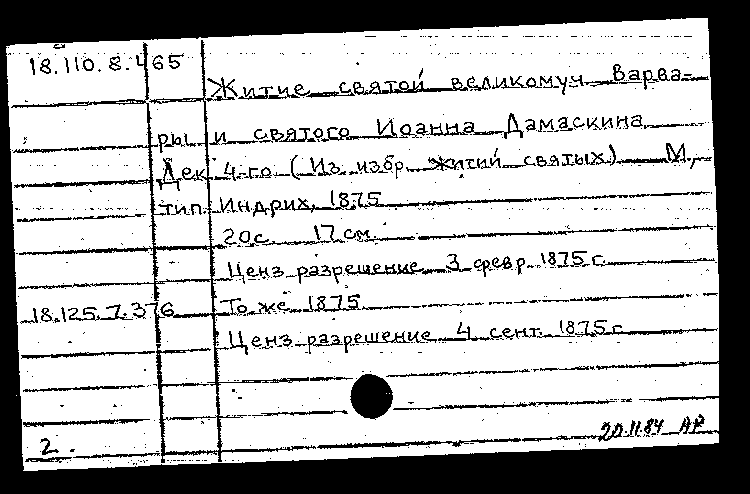 18.110.8.465
Житие святой великомуч Варва-
ры и святого Иоанна Дамаскина
Дек 4-го (Из избр. житий святых) М.,
тип. Индрих, 1875
20с. 17 см.
Ценз разрешение 3 февр. 1875 г.
18.125.7.376 То же 1875
Ценз разрешение 4 сент. 1875 г
2.
20.11.84 АР